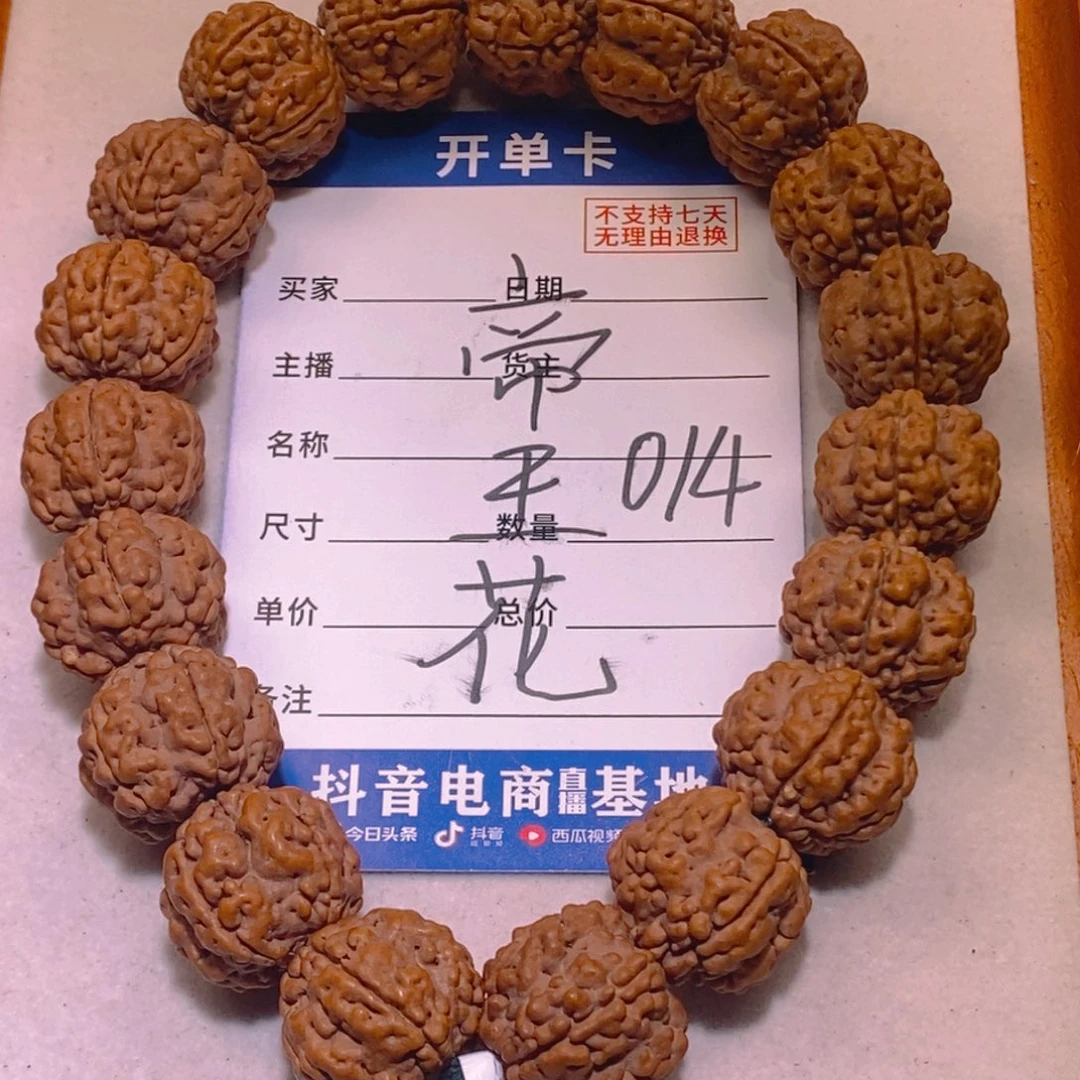 开单卡
不支持七天
无理由退换
买家 日期
主播 货主
名称
尺寸 数量
单价 总价
备注
帝
王
花
014
抖音电商直播基地
今日头条 抖音 西瓜视频